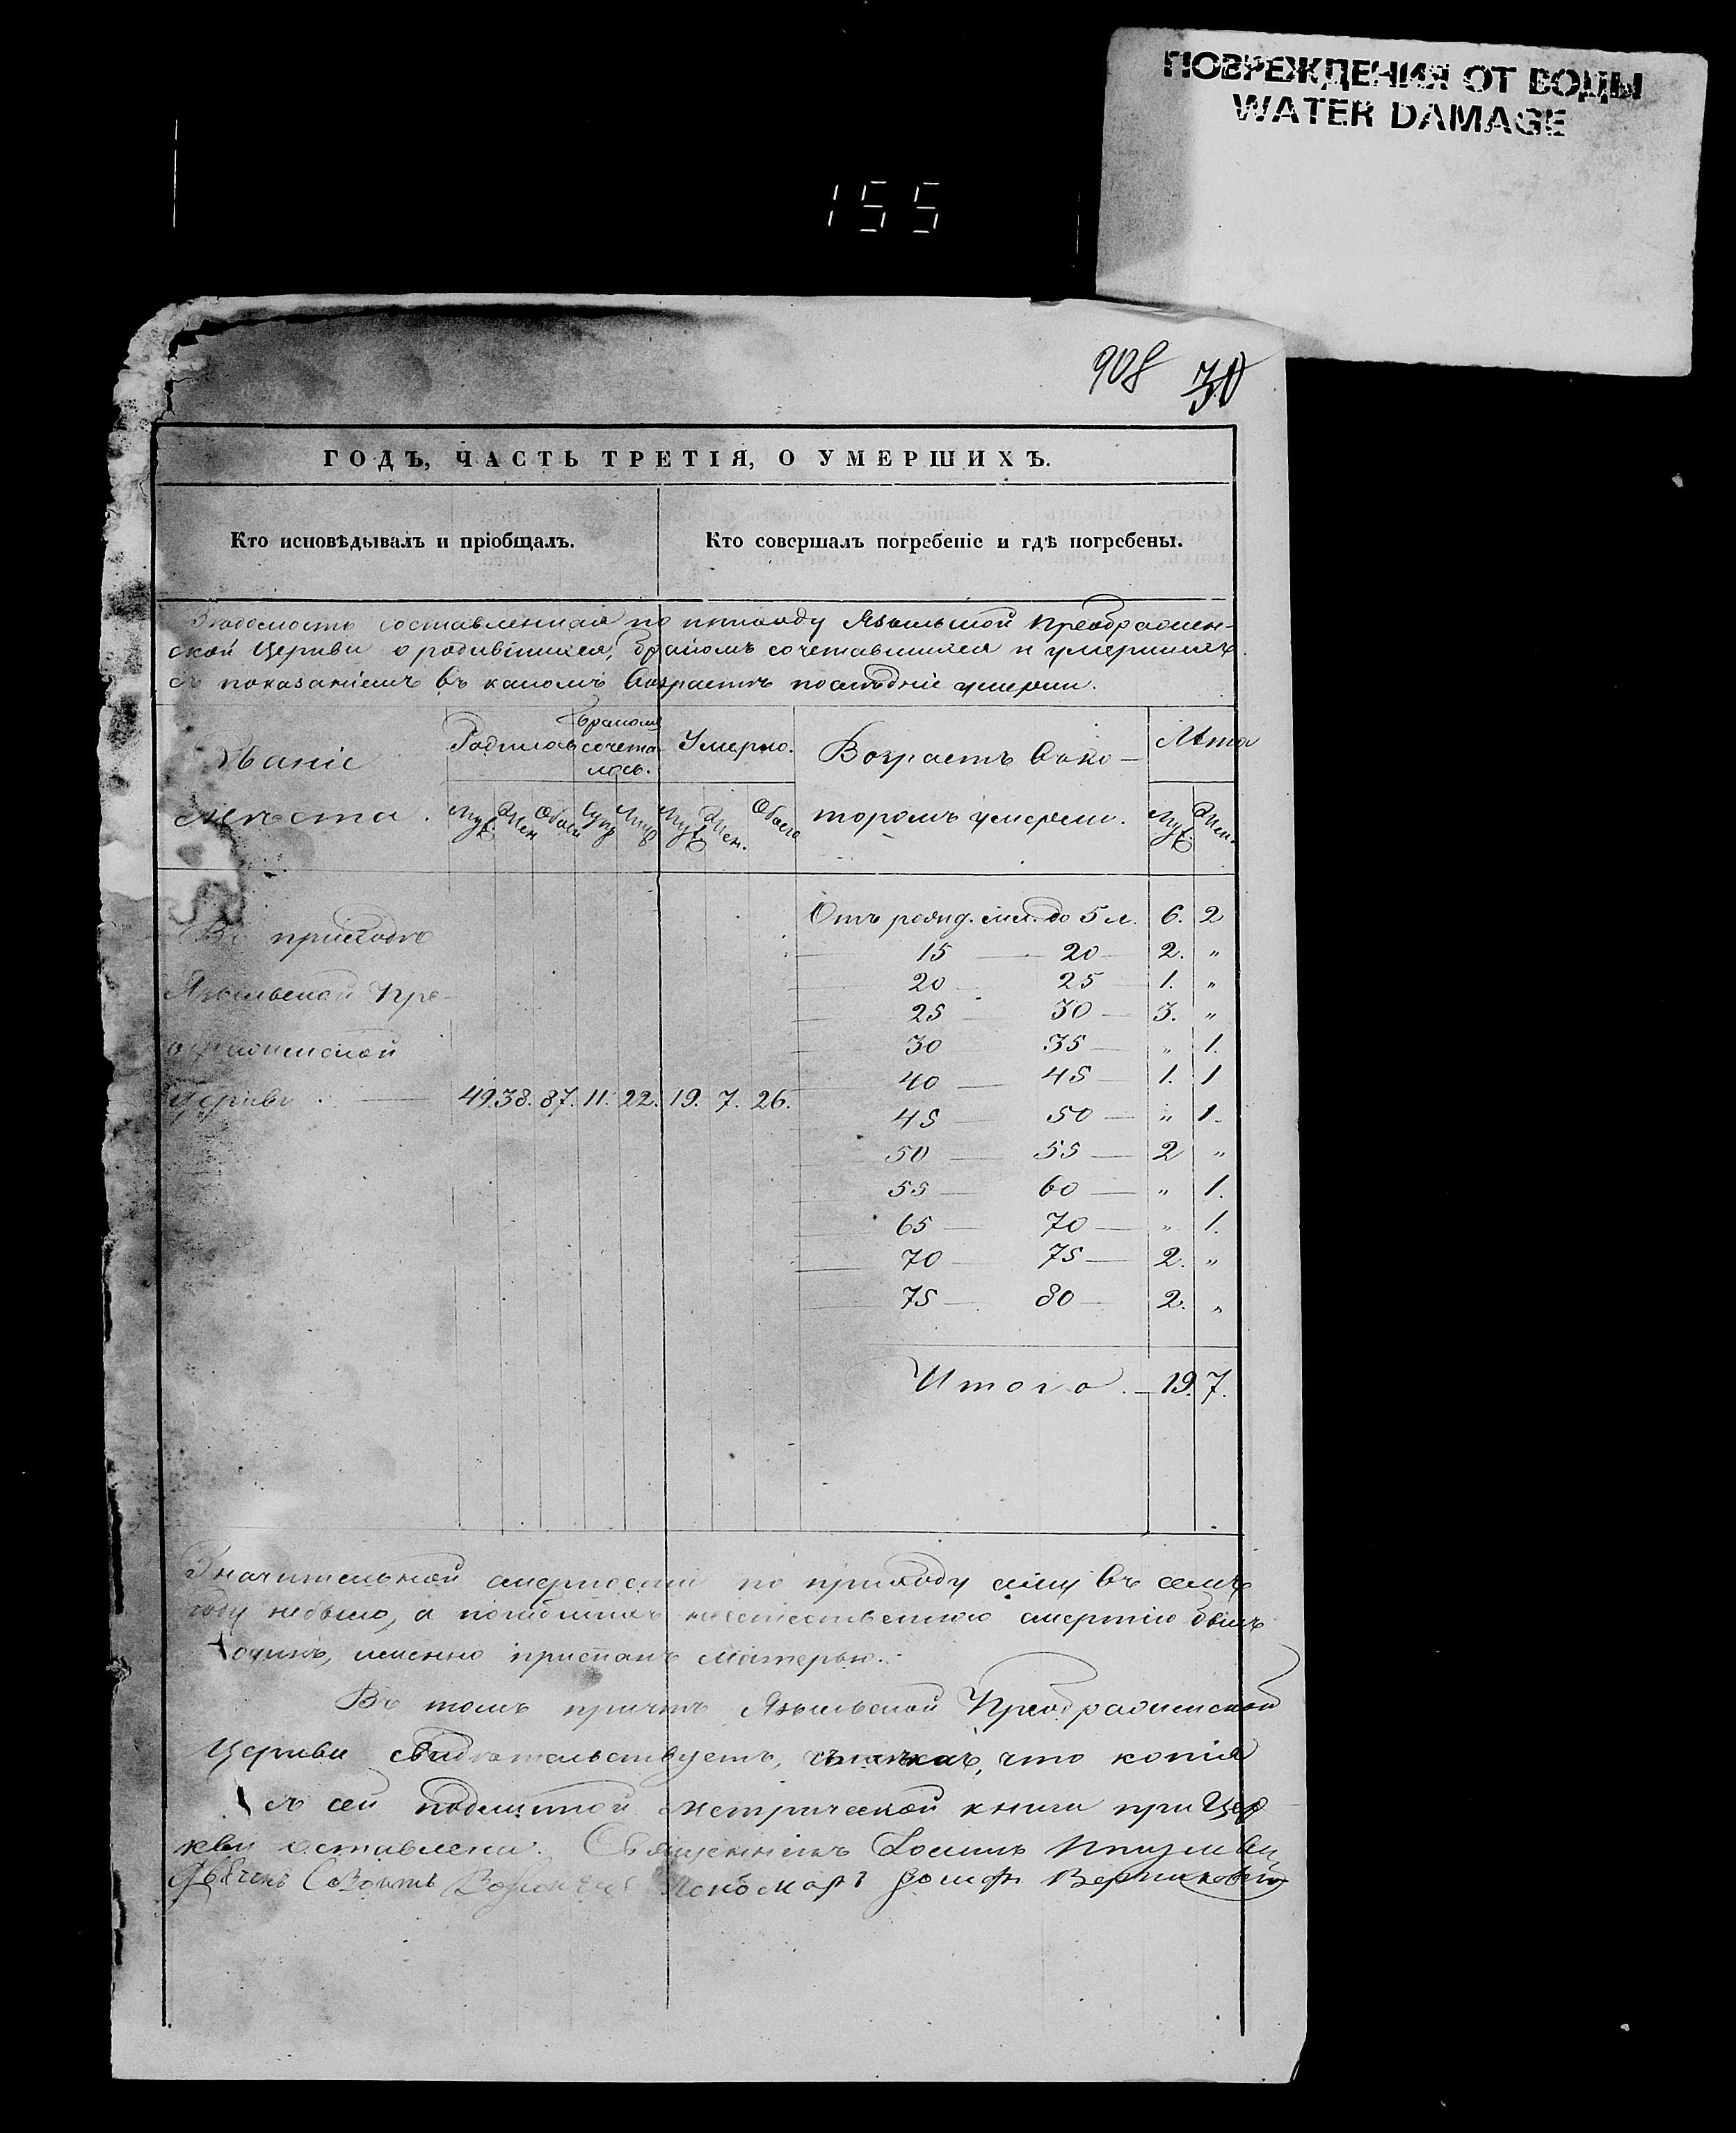 ПОВРЕЖДЕНИЯ ОТ ВОДЫ
WATER DAMAGE
155
908 30
ГОДЪ, ЧАСТЬ ТРЕТІЯ, О УМЕРШИХЪ.
Кто исповѣдывалъ и пріобщалъ. Кто совершалъ погребеніе и гдѣ погребены.
Вѣдомость составленная по приходу Языльской Преображен-
ской Церкви о родившихся, бракомъ сочетавшихся и умершихъ.
съ показаніемъ въ какомъ возрастѣ послѣдніе умерли.
Званіе Родилось Бракомъ сочета лось. Умерло. Возрастъ въ ко- Лѣта
мѣста. Муж. Жен. Обоего Муж. Жен. Обоего торомъ умерли. Муж. Жен.
Отъ рожд. мл. до 5 л. 6. 2
Въ приходѣ
15 — 20 2. „
Языльской Пре-
20 — 25 1. „
25 — 30 3. „
ображенской
30 35 „ 1.
40 — 45 1. 1
Церкви. — 49. 38. 87. 11. 22. 19. 7. 26.
45 — 50 „ 1.
50 — 55 2 „
55 — 60 „ 1.
65 — 70 „ 1.
70 — 75 2. „
75 — 80 2. „
Итого. — 19. 7.
Значительной смертности по приходу сему въ семъ
году небыло, а погибшихъ неестественною смертію былъ
одинъ, именно приспанъ матерью.
Въ томъ причтъ Языльской Преображенской
Церкви свидѣтельствуетъ, что копія
съ сей подлинной метрической книги при Цер
кви оставлена. Священникъ
Дьячекъ Пономарь Іосифъ